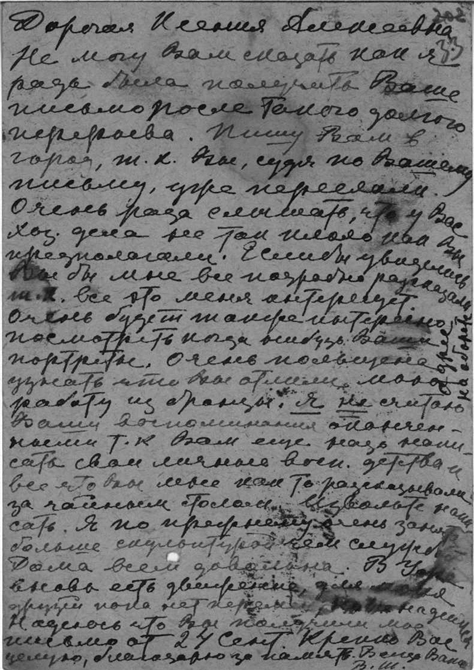 Дорогая Ксения Алексеевна
Не могу Вам сказать как я
рада была получить Ваше
письмо после такого долгого
перерыва. Пишу Вам в
город, т.к. Вы, судя по Вашему
письму, уже переехали.
Очень рада слышать, что у Вас
хоз. дела не так плохо как Вы
предполагали. Если бы увиделись
Вы бы мне все подробно рассказали
т.к. все это меня интересует
Очень будет также интересно
посмотреть когда нибудь Ваши
портреты. Очень польщена
узнать что Вы отлили мою
работу из бронзы. Я не считаю
Ваши воспоминания окончен-
ными т.к Вам еще надо напи-
сать свои личные восп. детства и
все что Вы мне как то рассказывали
за чайным столом. Извольте на
сать. Я по прежнему очень заня
больше скульптурой чем служб
Дома всем довольна. В
вновь есть движение, для
другим пока нет перемен
Надеюсь что Вы получили мое
письмо от 24 Сент. Крепко Вас
целую, благодарю за память. Всегда Ваша
адрес
на обороте